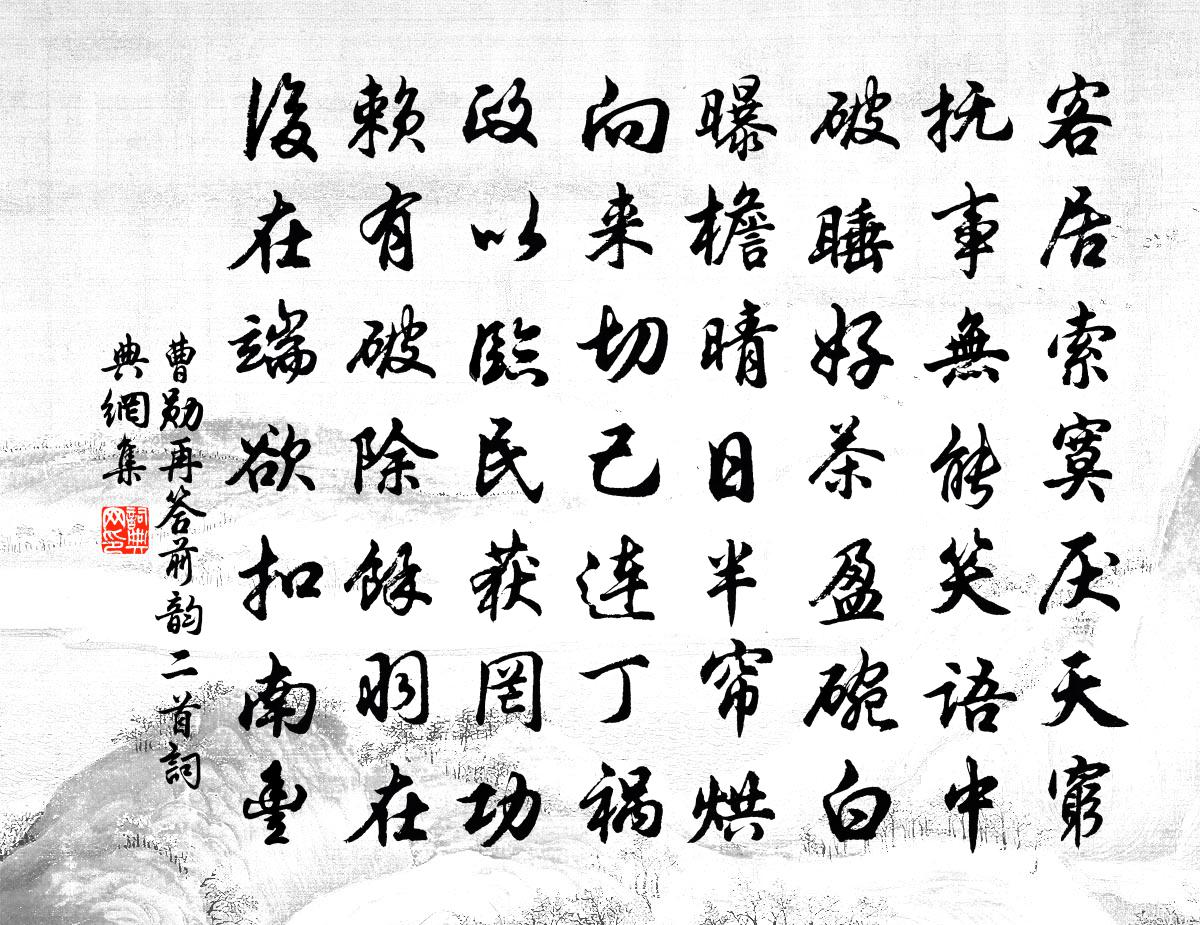 客居索寞厌天穷
抚事無能笑语中
破睡好茶盈碗白
曝檐晴日半帘烘
向来切己连丁祸
政以臨民获罔功
赖有破除馀羽在
後在端欲扣南豐
曹勋再答前韵二首詞
典網集
詞典
网印